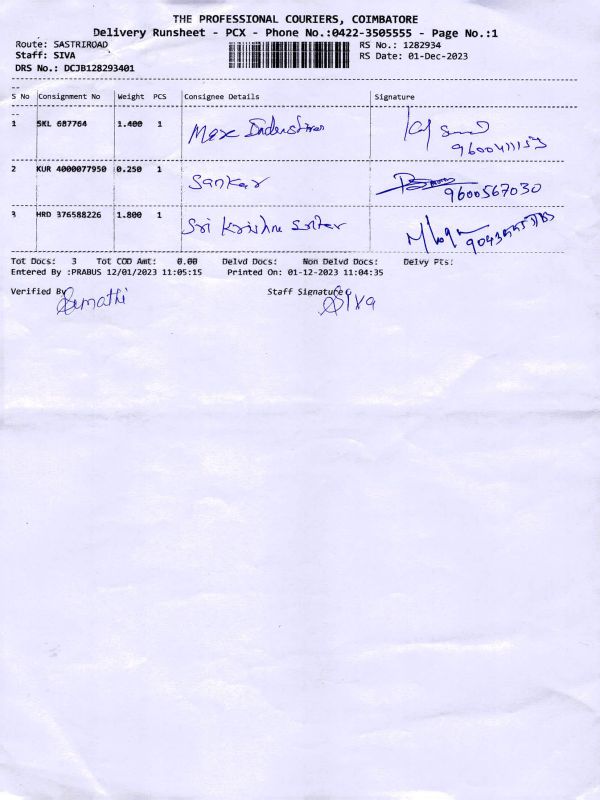 THE PROFESSIONAL COURIERS, COIMBATORE
Delivery Runsheet - PCX - Phone No.:0422-3505555 - Page No.:1
Route: SASTRIROAD RS No.: 1282934
Staff: SIVA RS Date: 01-Dec-2023
DRS No.: DCJB128293401
S No Consignment No Weight PCS Consignee Details Signature
1 SKL 687764 1.400 1 Mex
2 KUR 4000077950 0.250 1 Sankar 9600567030
3 HRD 376588226 1.800 1 Sri Krishna
Tot Docs: 3 Tot COD Amt: 0.00 Delvd Docs: Non Delvd Docs: Delvy Pts:
Entered By :PRABUS 12/01/2023 11:05:15 Printed On: 01-12-2023 11:04:35
Verified By Staff Signature
Sumathi Siva